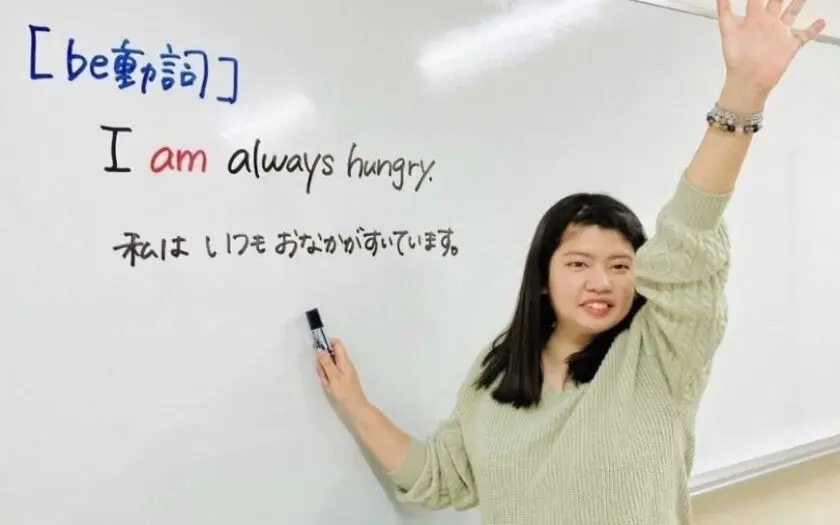 [be動詞]
I am always hungry.
私は いつも おなかがすいています。